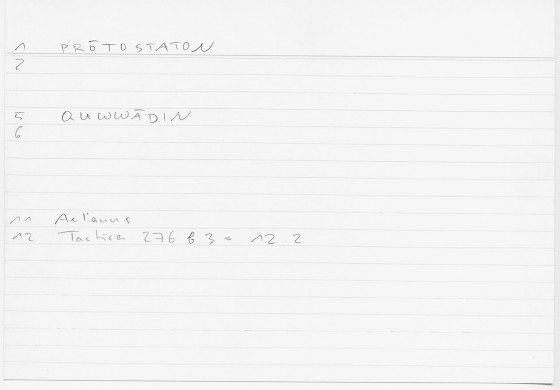 1 PRŌTOSTATON
2
5 QUWWĀDIN
6
11 Aelianus
12 Tactica 276 b 3 = 12 2